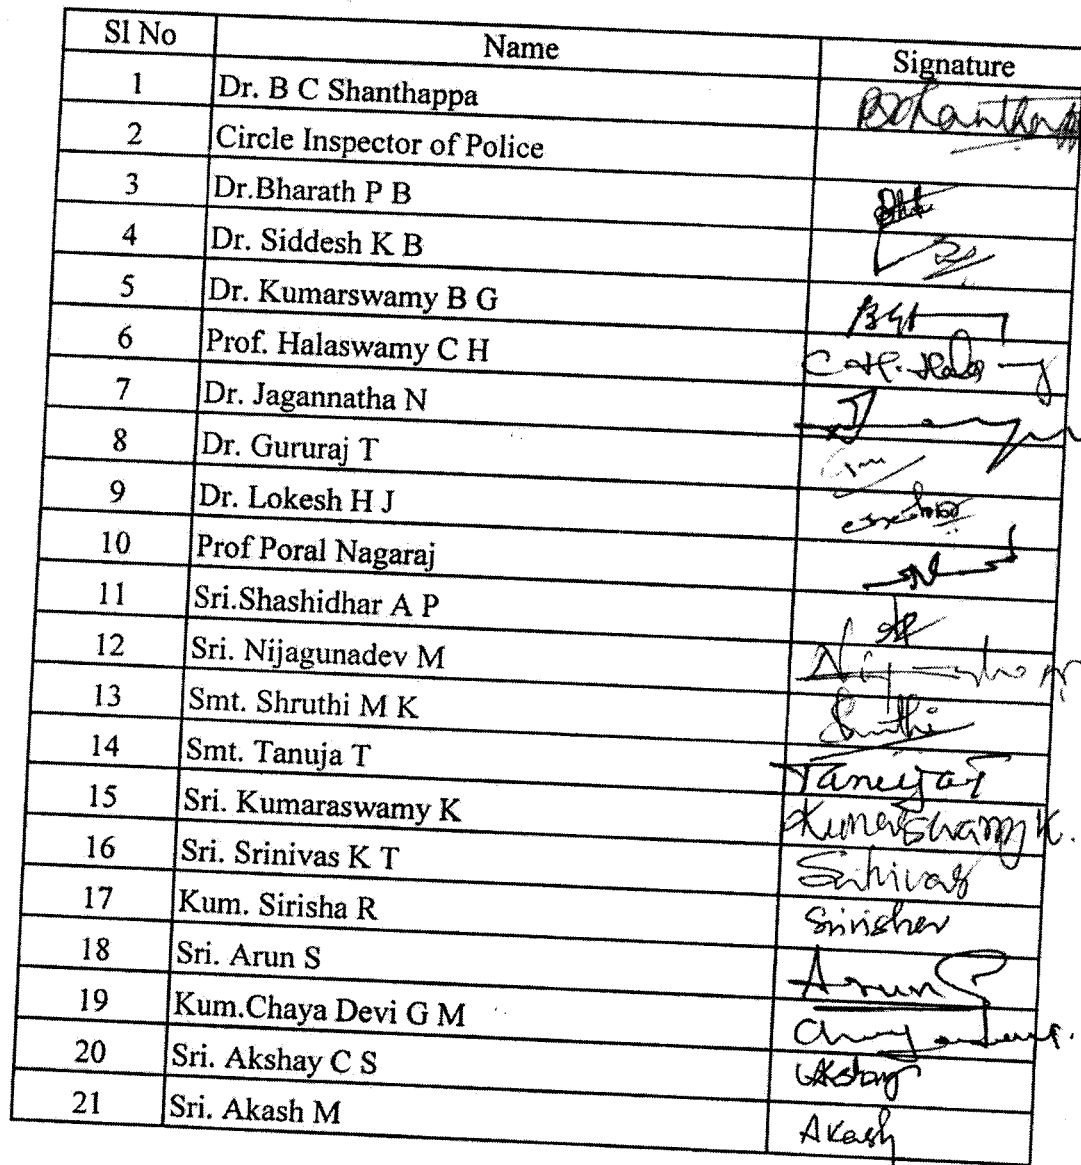 Sl No Name Signature
1 Dr. B C Shanthappa BCShanthappa
2 Circle Inspector of Police
3 Dr.Bharath P B
4 Dr. Siddesh K B
5 Dr. Kumarswamy B G
6 Prof. Halaswamy C H
7 Dr. Jagannatha N
8 Dr. Gururaj T
9 Dr. Lokesh H J
10 Prof Poral Nagaraj
11 Sri.Shashidhar A P
12 Sri. Nijagunadev M
13 Smt. Shruthi M K Shruthi
14 Smt. Tanuja T Tanuja T
15 Sri. Kumaraswamy K Kumarswamy K.
16 Sri. Srinivas K T Srinivas
17 Kum. Sirisha R Sirisha
18 Sri. Arun S Arun S
19 Kum.Chaya Devi G M
20 Sri. Akshay C S Akshay
21 Sri. Akash M Akash